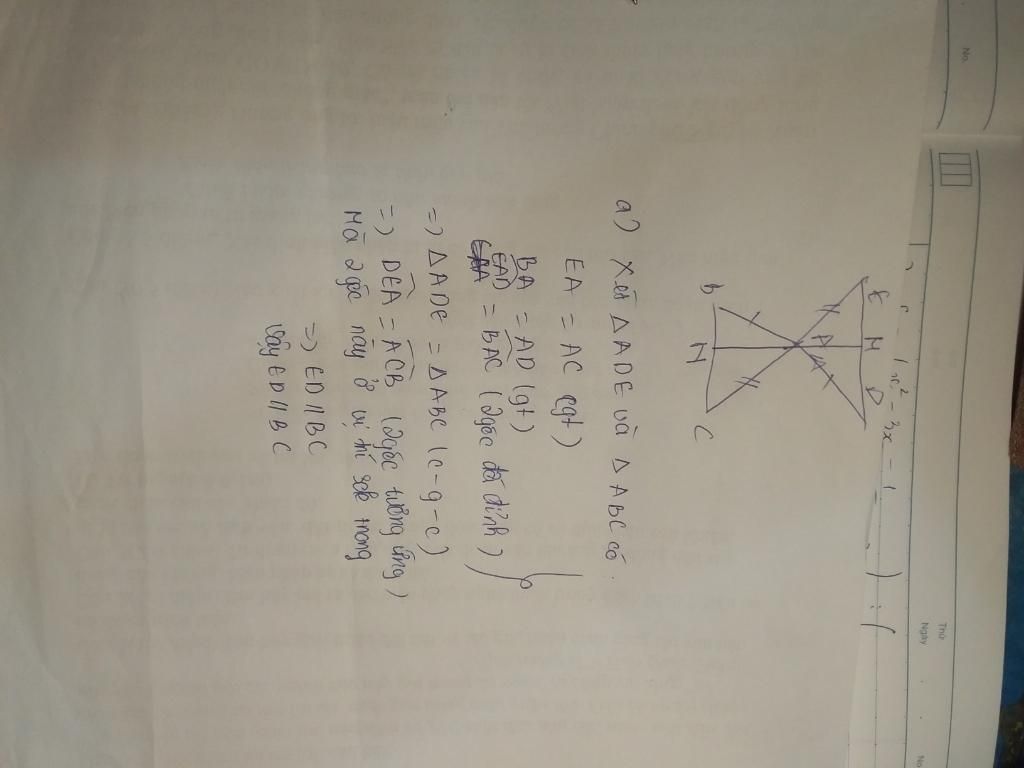 No.
Thứ
Ngày
No.
1x² - 3x - 1
E M D
A
B N C
a) Xét △ADE và △ABC có:
EA = AC (gt)
BA = AD (gt)
EAD = BAC (2góc đối đỉnh)
=) △ADE = △ABC (c-g-c)
=) DEA = ACB (2góc tương ứng)
Mà 2góc này ở vị trí sole trong
=) ED//BC
Vậy ED//BC